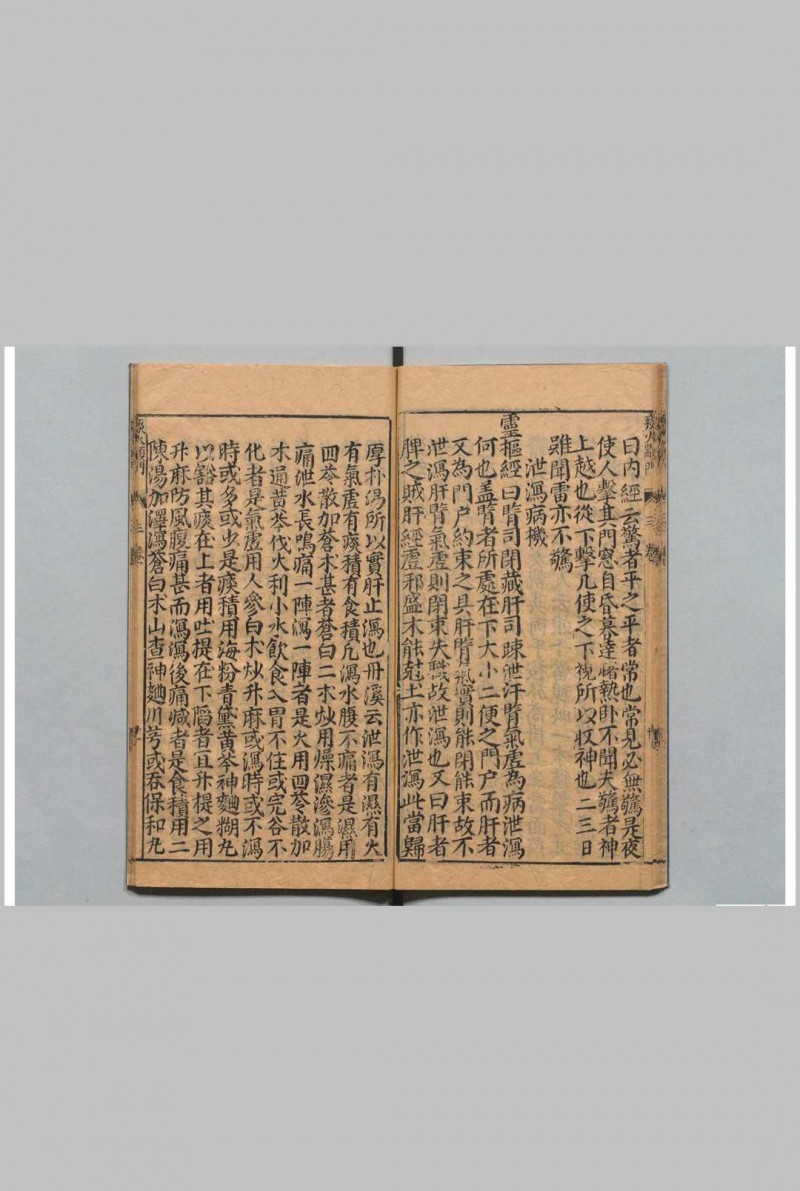 曰内經云驚者平之平者常也常見必無驚是夜
使人擊其門窓自昏暮達曙熟卧不聞夫驚者神
上越也從下擊几使之下視所以収神也二三日
雖聞雷亦不驚
泄瀉病機
靈樞經曰腎司閉藏肝司踈泄汗腎氣虛為病泄瀉
何也盖腎者所處在下大小二便之門户而肝者
又為門户約束之具肝腎氣實則能閉能束故不
泄瀉肝腎氣虛則閉束失職故泄瀉也又曰肝者
脾之賊肝經虛邪盛木能尅土亦作泄瀉此當歸
厚朴湯所以實肝止瀉也丹溪云泄瀉有濕有火
有氣虛有痰積有食積凡瀉水腹不痛者是濕用
四苓散加蒼术甚者蒼白二术炒用燥濕滲瀉腸
痛泄水長鳴痛一陣瀉一陣者是火用四苓散加
木通黄芩伐火利小水飲食入胃不住或完谷不
化者是氣虛用人參白术炒升麻或瀉時或不瀉
時或多或少是痰積用海粉青黛黄芩神麯糊丸
以豁其痰在上者用吐提在下陷者宜升提之用
升麻防風腹痛甚而瀉瀉後痛减者是食積用二
陳湯加澤瀉蒼白术山查神麯川芎或吞保和丸